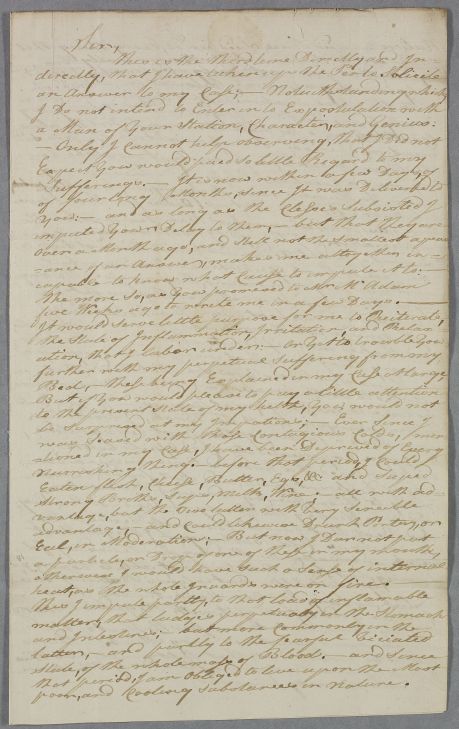 Sir,
This is the third time Directly and In=
directly, that I have taken up the Pen to Solicite
an Answer to my Case; — Notwithstanding which,
I Do not intend to Enter into Expostulation with
a Man of Your Station, Character, and Genius:
— Only I cannot help observing, that I Did not
Expect You would paid so little Regard to my
Sufferings. — It is now within a few Days, of
of four Months, since It was Delivered to
You: — and as long as the Classes Subsisted I
imputed Your Delay to them, — but that they are
over a Month ago, and still not the smallest appear
=ance of an Answer, makes me altogether in=
capable to know what Cause to impute it to: —
the more so, as You promised to Mr. McAdam
five Weeks ago to write me in a few Days. —
It would serve little purpose for me to Reiterate,
the State of Inflammation, Irritation, and Relax
ation, that I labor under: — or Yet to trouble You
further with my perpetual Suffering from my
Bed, — these being Explained in my Case at large,
But if You would please to pay a little attention
to the present State of my health, You would not
be Surprised at my Impatience; — Ever since I
was Seased with those Contagious men=
tioned in my Case, I have been Deprived of Every
nourishing thing. — before that period, I could
Eaten flesh, Cheese, Butter, Eggs, &c and Suped
strong Broths, Milk, Wine: — all with ad=
vantage, but the two latter with very Sensible
advantage, — and could likewise Drunk Porter, or
Eal, in Moderation; — But now I Dare not put
a particle, or Drop of one of these in my mouth,
otherwise I would have such a Sense of internal
heat, as the whole Inwards were on fire. —
this I impute partly, to that load of inflamable
matter, that lodges perpetualy in the Stomach
and Intestines; — but more Commonly in the
latter, — and partly to the fearful Viciated
State of the whole mass of Blood. — and Since
that period, I am obliged to live upon the Most
poor, and Cooling Substances in Nature.